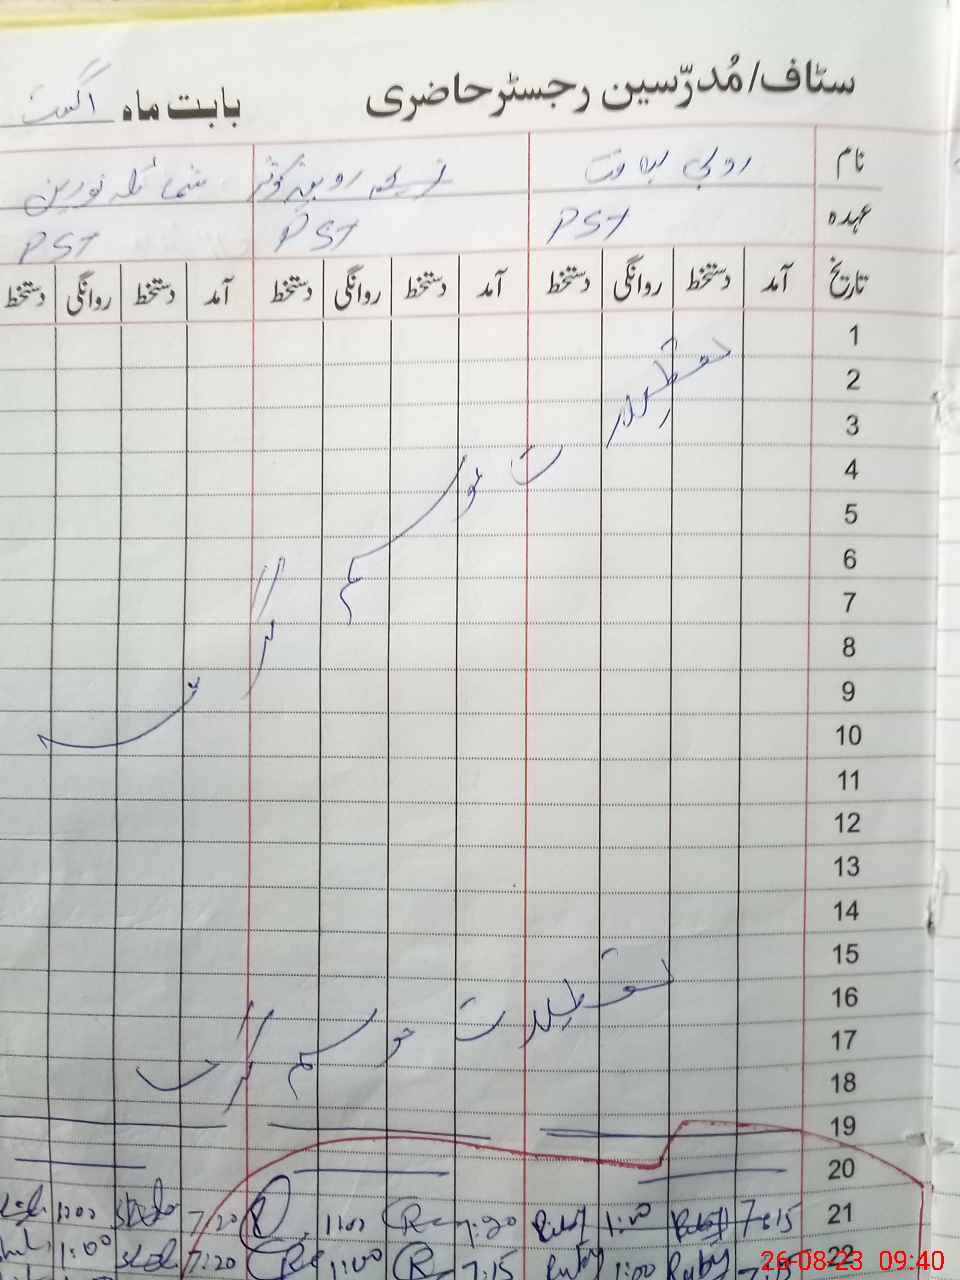 سٹاف/مُدرّسین رجسٹر حاضری بابت ماہ اگست
نام روبی شمائلہ نورین
عہدہ PST PST PST
تاریخ آمد دستخط روانگی دستخط آمد دستخط روانگی دستخط آمد دستخط روانگی دستخط
1
2
3
4
5
6
7
8
9
10
تعطیلات موسم گرما
11
12
13
14
15
16
17
18
تعطیلات موسم گرما
19
20
21 7:15 Ruby 1:00 Ruby 7:20 1:00 7:20 1:00
22 Ruby 1:00 Ruby 7:15 1:00 7:20 1:00
26-08-23 09:40